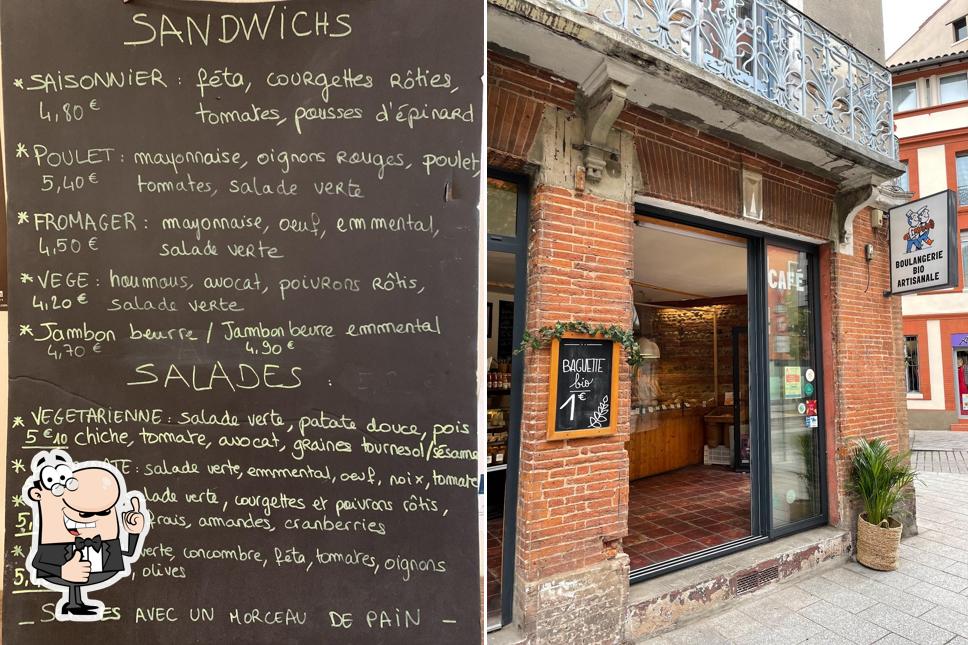 SANDWICHS
* SAISONNIER : féta, courgettes rôties,
4,80 € tomates, pousses d'épinard
* POULET : mayonnaise, oignons Rouges, poulet,
5,40 € tomates, salade verte
* FROMAGER : mayonnaise, oeuf, emmental,
4,50 € salade verte
* VEGE : houmous, avocat, poivrons rôtis,
4,20 € salade verte
* Jambon beurre / Jambon beurre emmental
4,70 € 4,90 €
SALADES :
* VEGETARIENNE : salade verte, patate douce, pois
5 € 10 chiche, tomate, avocat, graines tournesol/sésame
: salade verte, emmental, oeuf, noix, tomate
verte, courgettes et poivrons rôtis,
amandes, cranberries
verte, concombre, féta, tomates, oignons
olives
AVEC UN MORCEAU DE PAIN -
BAGUETTE
bio
1 €
CAFÉ
BOULANGERIE
BIO
ARTISANALE